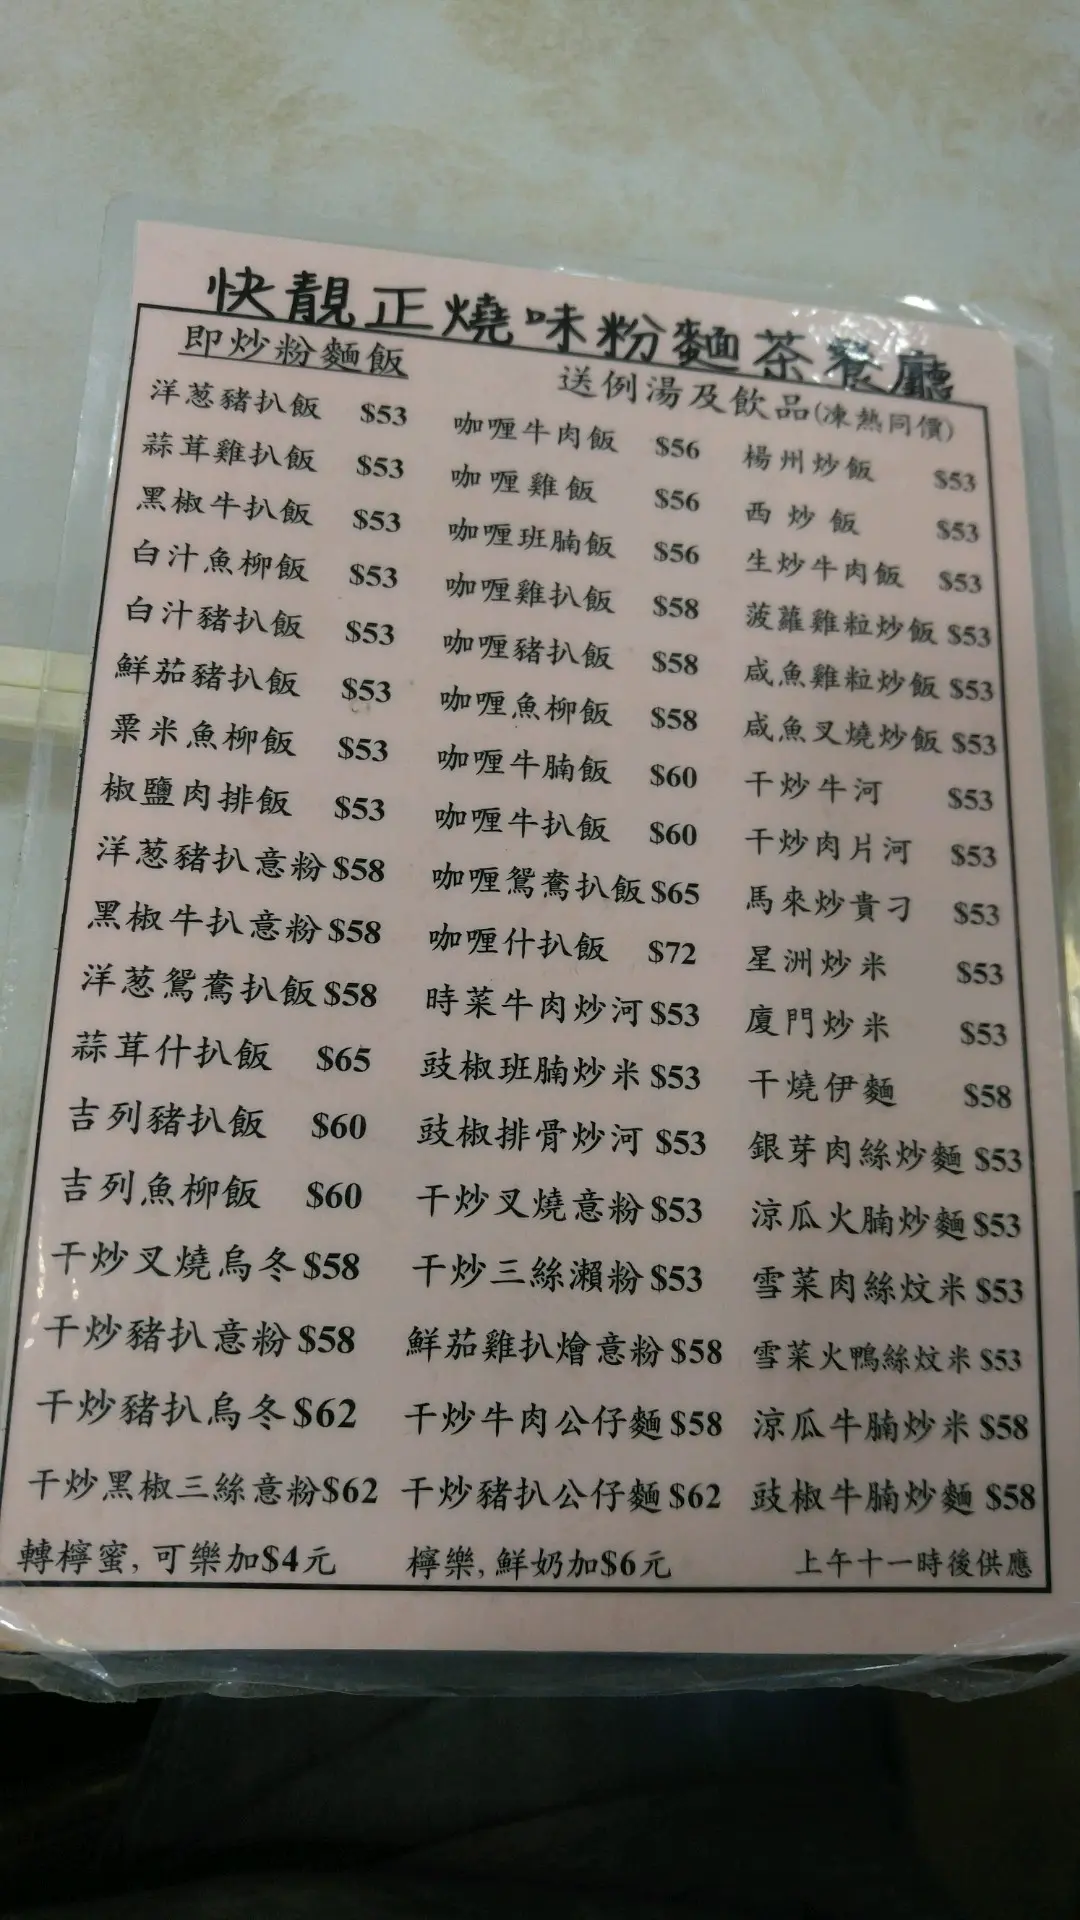 快靚正燒味粉麵茶餐廳
即炒粉麵飯
送例湯及飲品(凍熱同價)
洋葱豬扒飯 $53
蒜茸雞扒飯 $53
黑椒牛扒飯 $53
白汁魚柳飯 $53
白汁豬扒飯 $53
鮮茄豬扒飯 $53
粟米魚柳飯 $53
椒鹽肉排飯 $53
洋葱豬扒意粉 $58
黑椒牛扒意粉 $58
洋葱鴛鴦扒飯 $58
蒜茸什扒飯 $65
吉列豬扒飯 $60
吉列魚柳飯 $60
干炒叉燒烏冬 $58
干炒豬扒意粉 $58
干炒豬扒烏冬 $62
干炒黑椒三絲意粉 $62
咖喱牛肉飯 $56
咖喱雞飯 $56
咖喱班腩飯 $56
咖喱雞扒飯 $58
咖喱豬扒飯 $58
咖喱魚柳飯 $58
咖喱牛腩飯 $60
咖喱牛扒飯 $60
咖喱鴛鴦扒飯 $65
咖喱什扒飯 $72
時菜牛肉炒河 $53
豉椒班腩炒米 $53
豉椒排骨炒河 $53
干炒叉燒意粉 $53
干炒三絲瀨粉 $53
鮮茄雞扒燴意粉 $58
干炒牛肉公仔麵 $58
干炒豬扒公仔麵 $62
楊州炒飯 $53
西炒飯 $53
生炒牛肉飯 $53
菠蘿雞粒炒飯 $53
咸魚雞粒炒飯 $53
咸魚叉燒炒飯 $53
干炒牛河 $53
干炒肉片河 $53
馬來炒貴刁 $53
星洲炒米 $53
廈門炒米 $53
干燒伊麵 $58
銀芽肉絲炒麵 $53
涼瓜火腩炒麵 $53
雪菜肉絲炆米 $53
雪菜火鴨絲炆米 $53
涼瓜牛腩炒米 $58
豉椒牛腩炒麵 $58
轉檸蜜, 可樂加$4元
檸樂, 鮮奶加$6元
上午十一時後供應